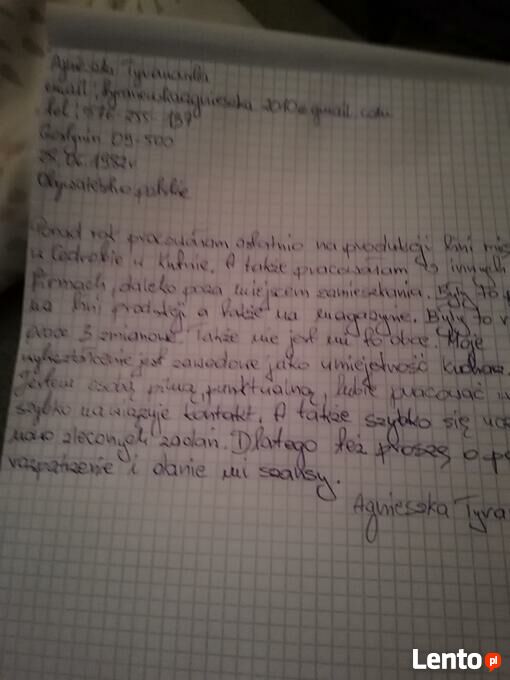 Agnieszka
email:
tel:
Gostynin 09-500
1982r
Obywatelstwo polskie
Ponad rok pracowałam ostatnio na produkcji linii
w Cedrobie w Kutnie. A także pracowałam w innych
firmach, daleko poza miejscem zamieszkania. Były to
na linii produkcji a także na magazynie. Były to
prace 3 zmianowe. Także nie jest mi to obce. Moje
wykształcenie jest zawodowe jako umiejętność
Jestem osobą pilną, punktualną, lubię pracować
szybko nawiązuję kontakt. A także szybko się
nowo zleconych zadań. Dlatego też proszę o
rozpatrzenie i danie mi szansy.
Agnieszka
Lento.pl